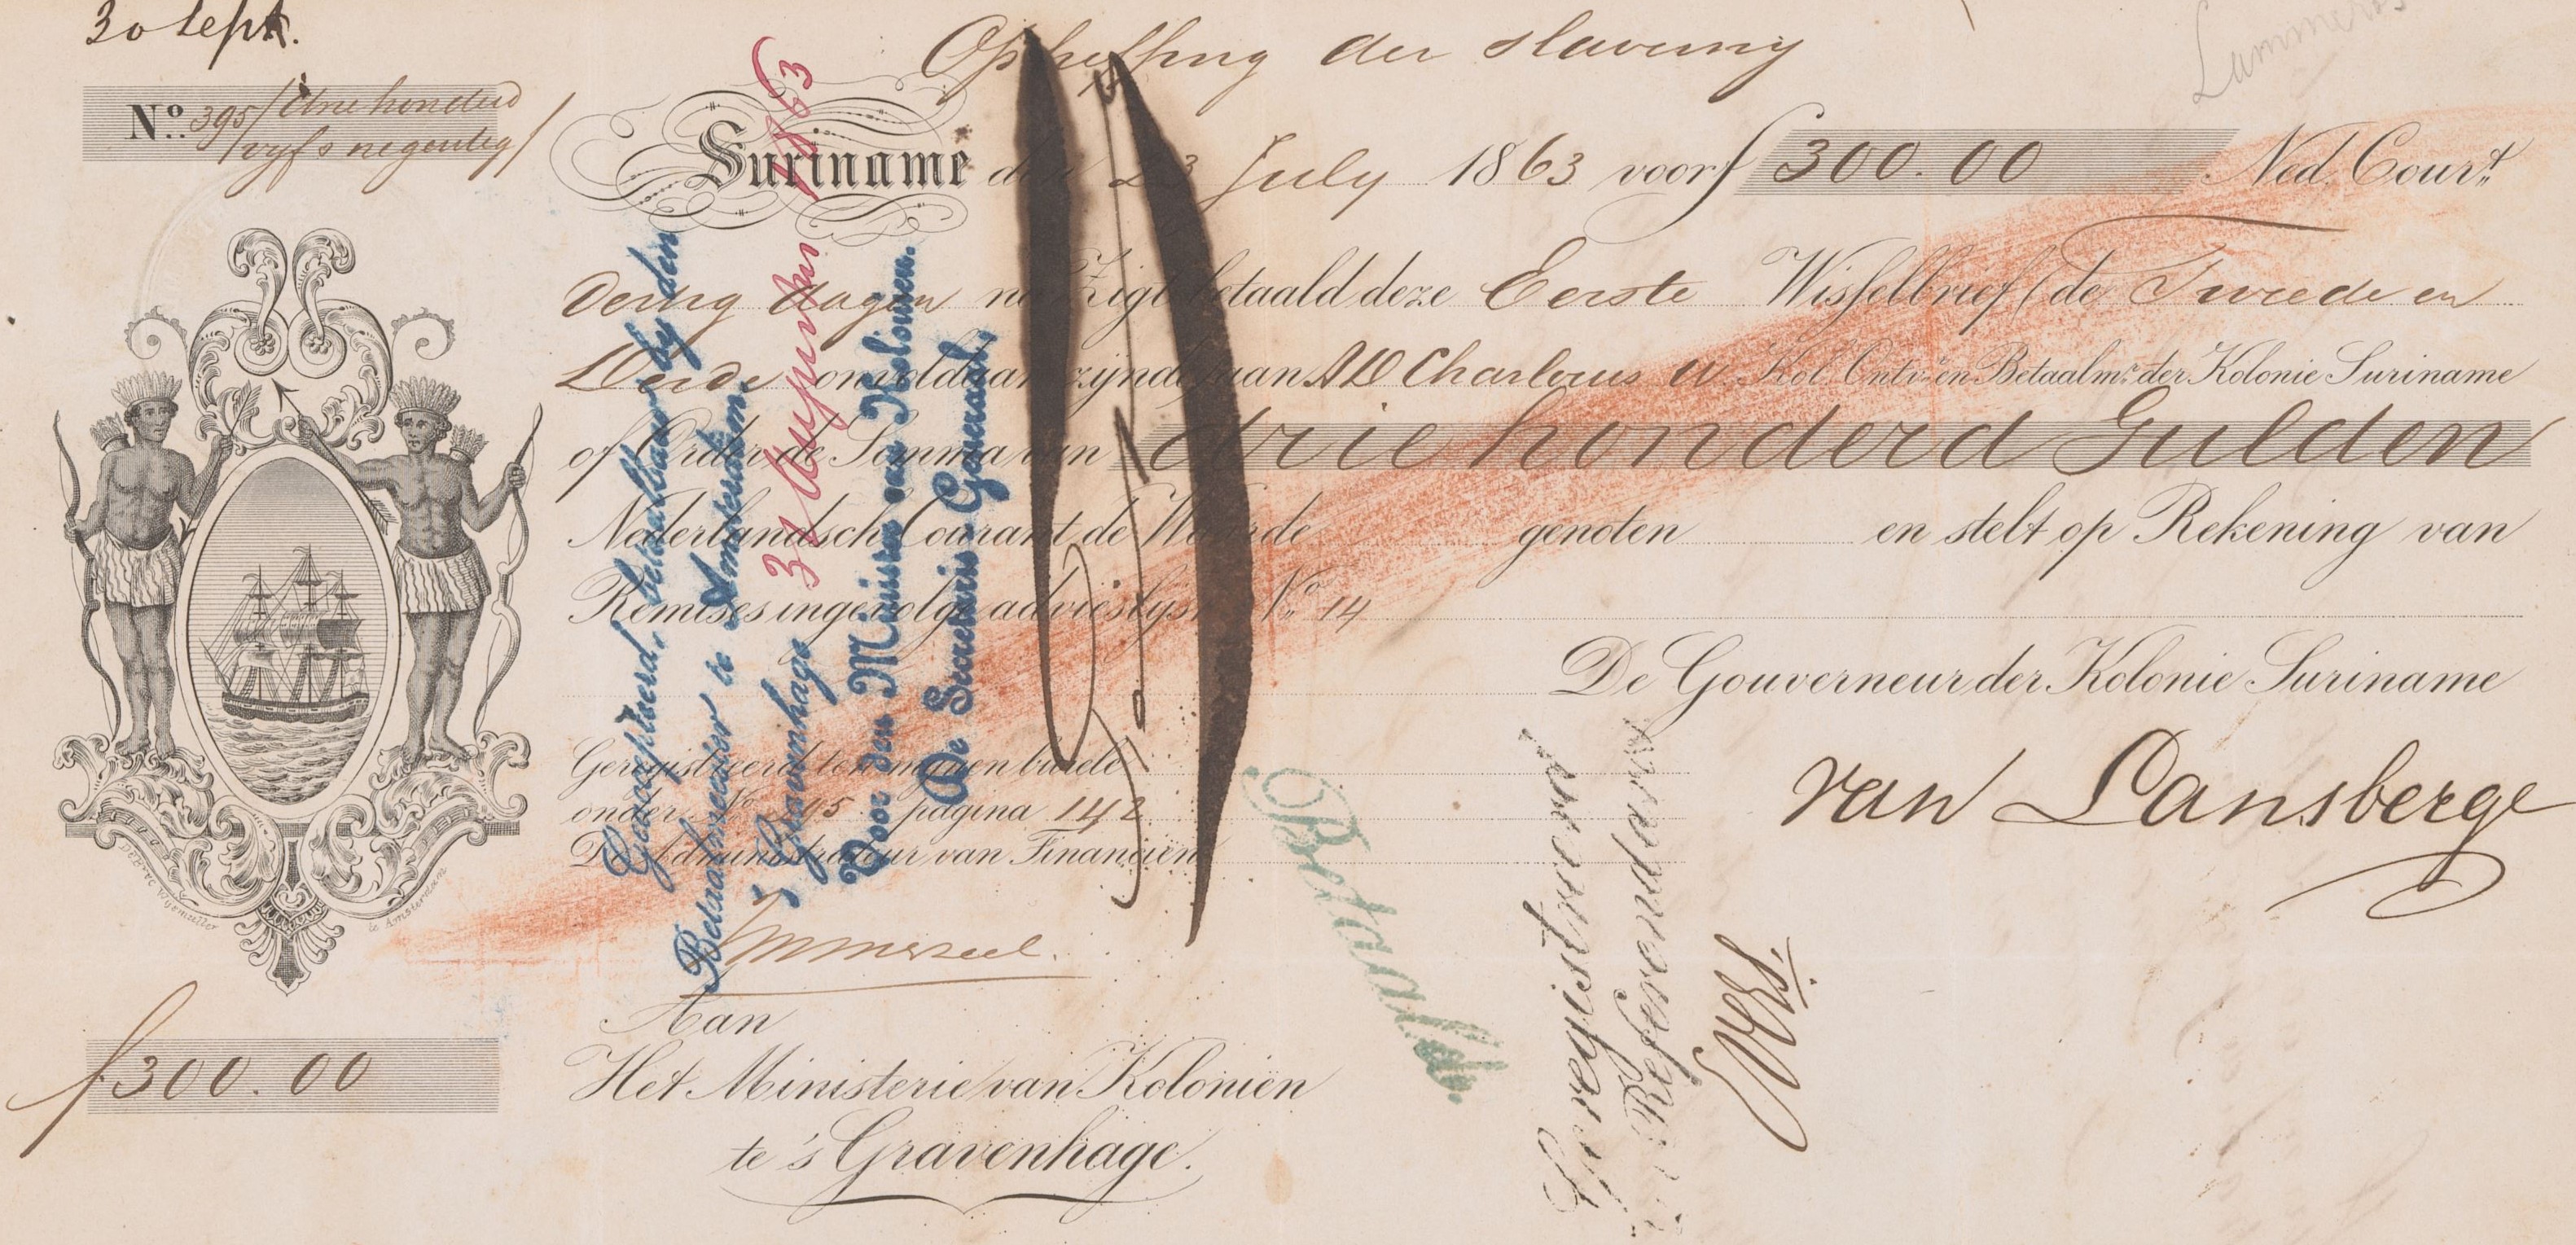 30 Sept.
Opheffing der slaverny
Nº 395 / drie honderd
vyf & negentig /
Suriname den 23 July 1863 voor f 300.00 Ned. Cour.t
Dertig dagen na Zigt betaald deze Eerste Wisselbrief (de Tweede en
Derde onvoldaan zynde) aan AD Charlouis w. Kol. Ontv.r en Betaalm.r der Kolonie Suriname
of Order de Somma van drie honderd Gulden
Nederlandsch Courant de Waarde genoten en stelt op Rekening van
Remises ingevolge advieslyst Nº 14
De Gouverneur der Kolonie Suriname
van Lansberge
Geregistreerd ten mynen burele
onder Nº 295 pagina 142
De Administrateur van Financien
Aan
Het Ministerie van Koloniën
te 's Gravenhage.
f 300.00
Geaccepteerd, betaalbaar by den
Betaalmeester te Amsterdam.
's Gravenhage 31 Augustus 1863
Voor den Minister van Kolonien.
De Secretaris Generaal,
Betaald.
Geregistreerd
Referendaris
Evers.